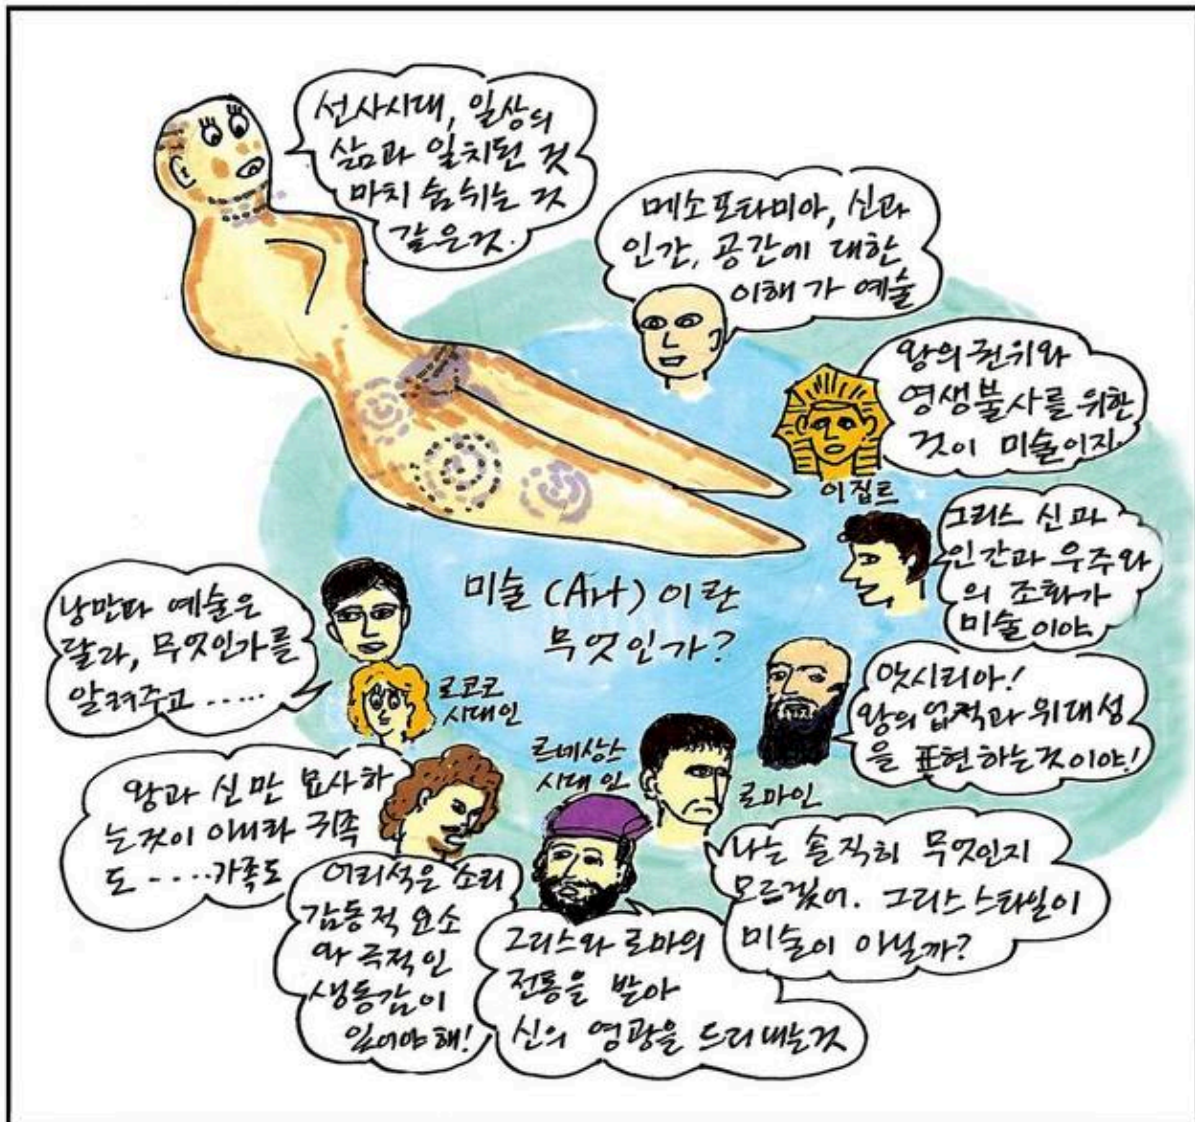 선사시대, 일상의
삶과 일치된 것
마치 숨쉬는 것
같은것.
메소포타미아, 신과
인간, 공간에 대한
이해가 예술
왕의 권위와
영생불사를 위한
것이 미술이지
이집트
그리스 신과
인간과 우주와
의 조화가
미술이야
미술(Art)이란
무엇인가?
앗시리아!
왕의 업적과 위대성
을 표현하는것이야!
로마인
나는 솔직히 무엇인지
모르겠어. 그리스 스타일이
미술이 아닐까?
르네상스
시대인
그리스와 로마의
전통을 받아
신의 영광을 드러내는것
어리석은 소리
감동적 요소
와 극적인
생동감이
있어야해!
로코코
시대인
왕과 신만 묘사하
는것이 아니라 귀족
도 ....가족도
낭만파 예술은
달라, 무엇인가를
알려주고 ......